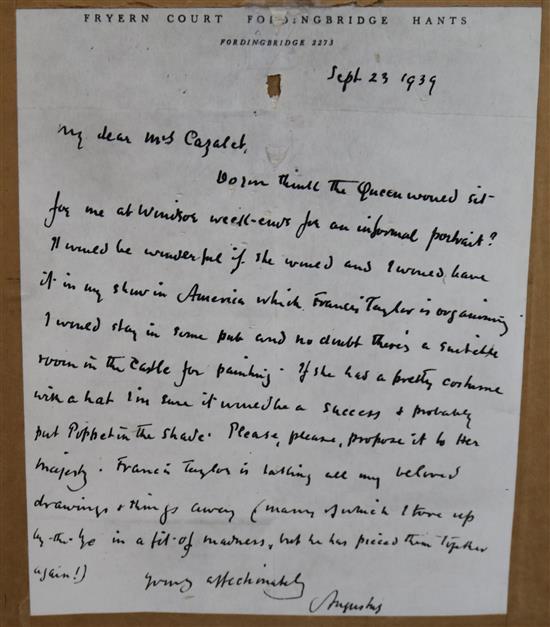 FRYERN COURT FORDINGBRIDGE HANTS
FORDINGBRIDGE 2273
Sept 23 1939
My dear Mrs Cazalet,
Do you think the Queen would sit
for me at Windsor week-ends for an informal portrait?
It would be wonderful if she would and I would have
it in my show in America which Francis Taylor is organising
I would stay in some pub and no doubt there's a suitable
room in the Castle for painting. If she has a pretty costume
with a hat I'm sure it would be a success & probably
put Poppet in the shade. Please, please, propose it to Her
Majesty. Francis Taylor is taking all my beloved
drawings & things away (many of which I tore up
by-the-bye in a fit of madness, but he has pieced them together
again!)
Yours affectionately
Augustus